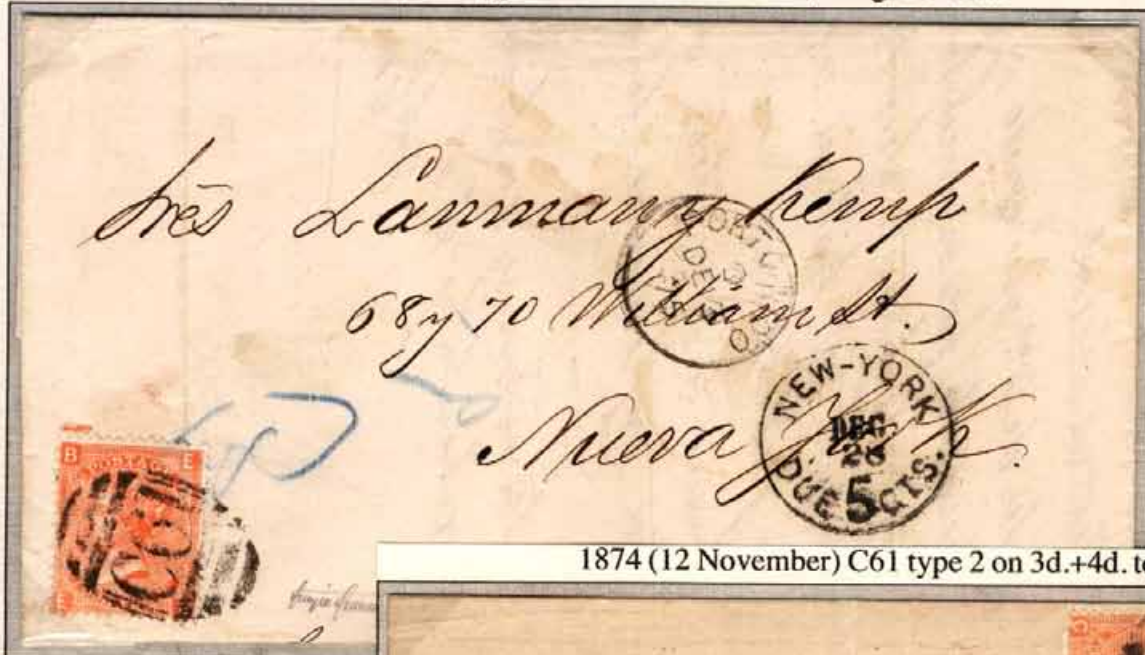 Srēs Lanman y Kemp
68 y 70 William St.
Nueva York.
PORTO RICO
DE
NEW-YORK
DEC
26
DUE 5 CTS.
B E
POSTAGE
C61
E
1874 (12 November) C61 type 2 on 3d.+4d. to